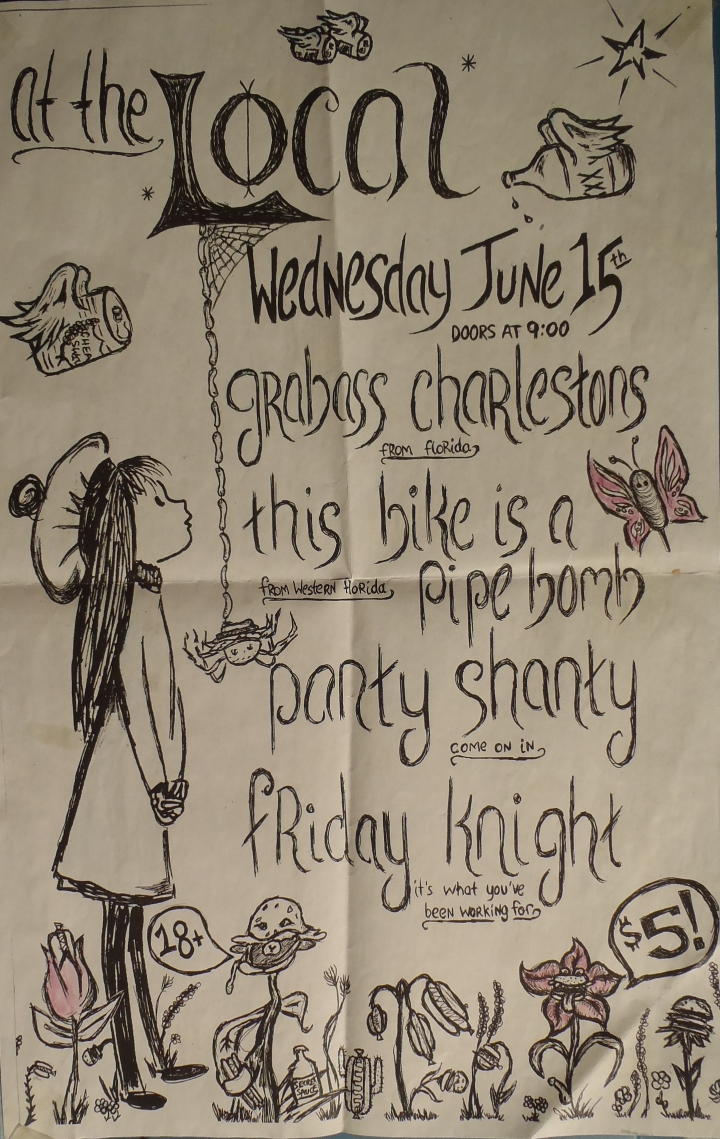 at the Local
Wednesday June 15th
DOORS AT 9:00
grabass charlestons
from florida
this bike is a
pipe bomb
from Western floRida
panty shanty
come on in
fRiday knight
it's what you've
been working for
18+
$5!
SECRET
SAUCE